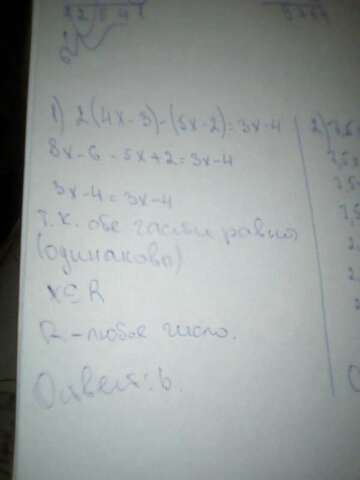 1) 2(4x-3)-(5x-2)=3x-4
8x-6-5x+2=3x-4
3x-4=3x-4
т.к. обе части равны
(одинаковы)
x∈R
R-любое число.
Ответ: b.
2)